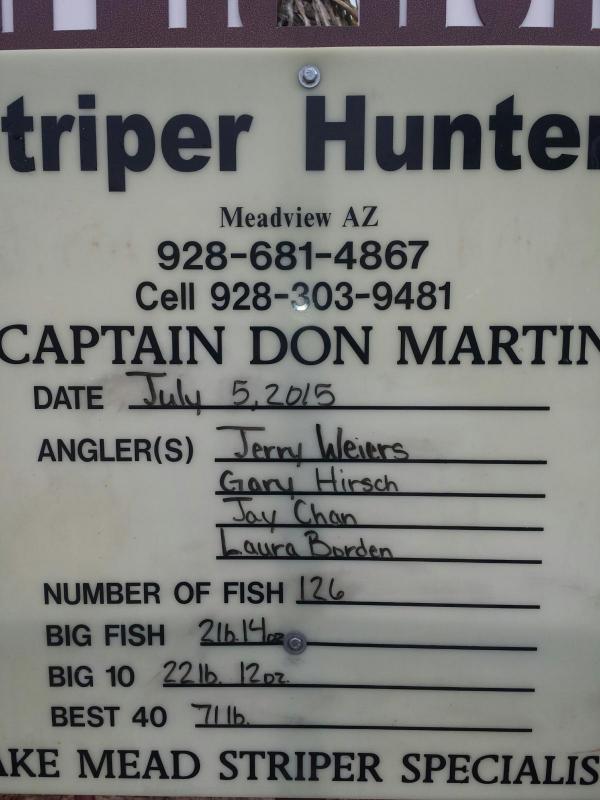 triper Hunter
Meadview AZ
928-681-4867
Cell 928-303-9481
CAPTAIN DON MARTIN
DATE July 5, 2015
ANGLER(S) Jerry Weiers
Gary Hirsch
Jay Chan
Laura Borden
NUMBER OF FISH 126
BIG FISH 2lb. 14oz
BIG 10 22lb. 12oz.
BEST 40 71lb.
AKE MEAD STRIPER SPECIALIS